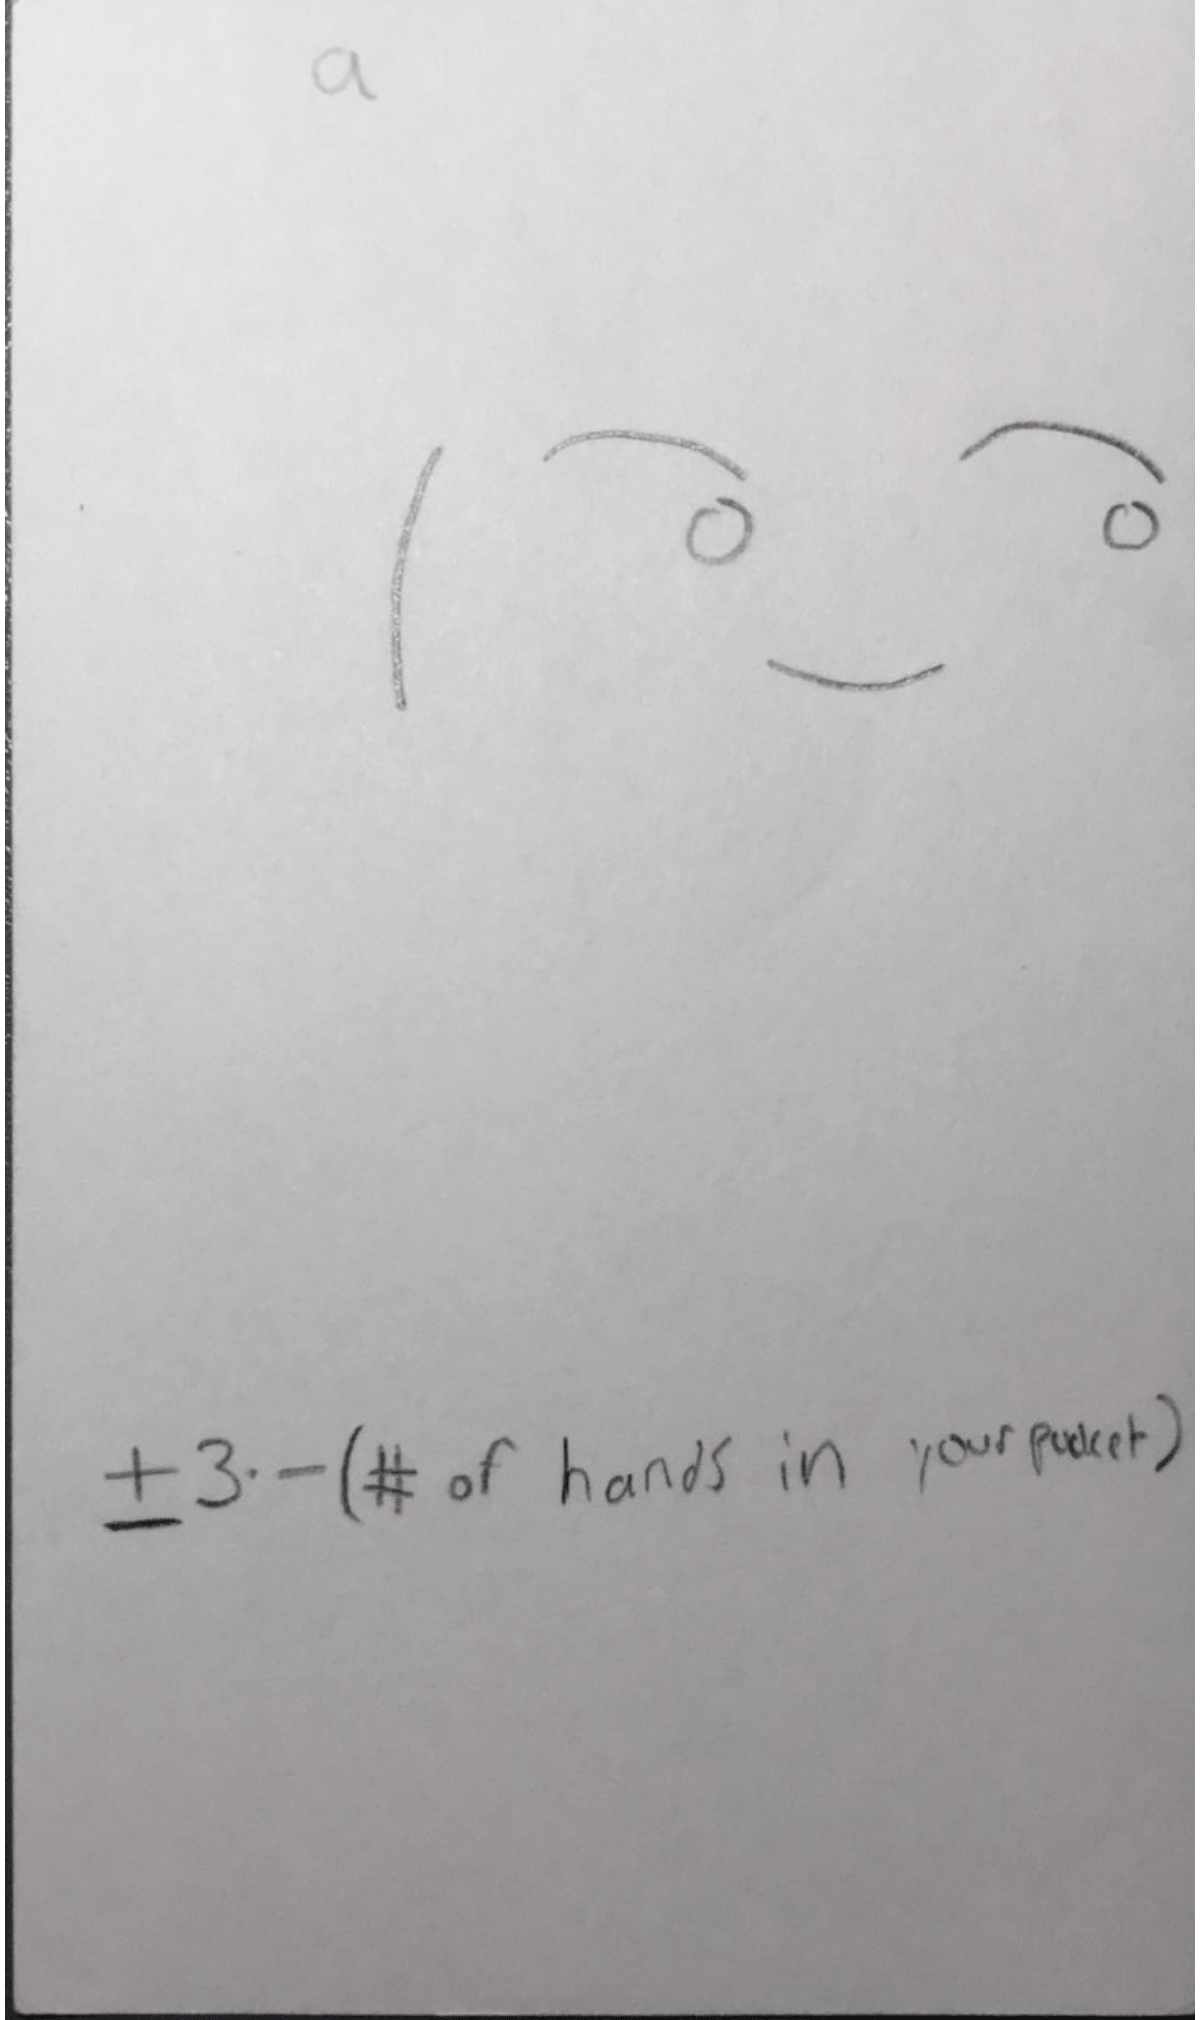 a
± 3 · - (# of hands in your pocket)